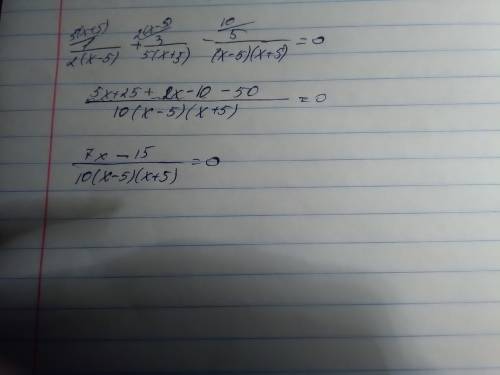 5(x+5) 2(x-5) 10
1/2(x-5) + 3/5(x+5) - 5/(x-5)(x+5) = 0
5x+25+2x-10-50/10(x-5)(x+5) = 0
7x-15/10(x-5)(x+5) = 0